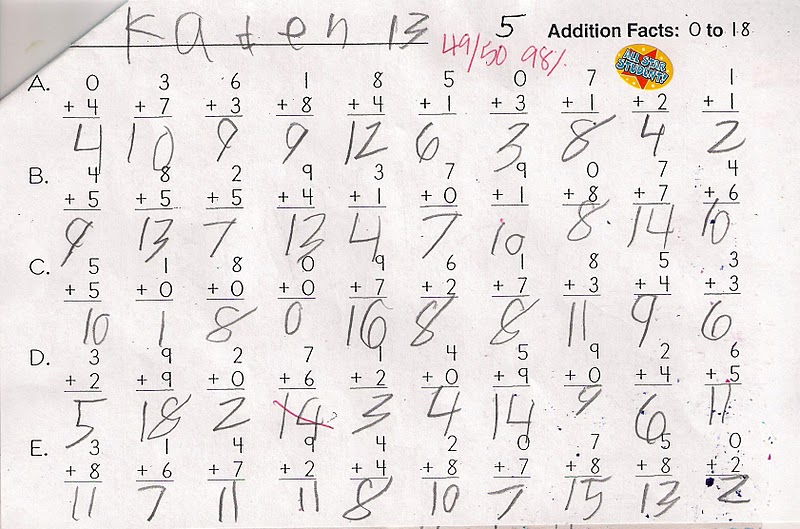 Kaden 13 5 Addition Facts: 0 to 18
49/50 98%
ALL STAR
STUDENT!
A. 0 3 6 1 8 5 0 7 1
+ 4 + 7 + 3 + 8 + 4 + 1 + 3 + 1 + 2 + 1
4 10 9 9 12 6 3 8 4 2
B. 4 8 2 9 3 7 9 0 7 4
+ 5 + 5 + 5 + 4 + 1 + 0 + 1 + 8 + 7 + 6
9 13 7 13 4 7 10 8 14 10
C. 5 1 8 0 9 6 1 8 5 3
+ 5 + 0 + 0 + 0 + 7 + 2 + 7 + 3 + 4 + 3
10 1 8 0 16 8 8 11 9 6
D. 3 9 2 7 1 4 5 9 2 6
+ 2 + 9 + 0 + 6 + 2 + 0 + 9 + 0 + 4 + 5
5 18 2 14 3 4 14 9 6 11
E. 3 1 4 9 4 2 0 7 5 0
+ 8 + 6 + 7 + 2 + 4 + 8 + 7 + 8 + 8 + 2
11 7 11 11 8 10 7 15 13 2